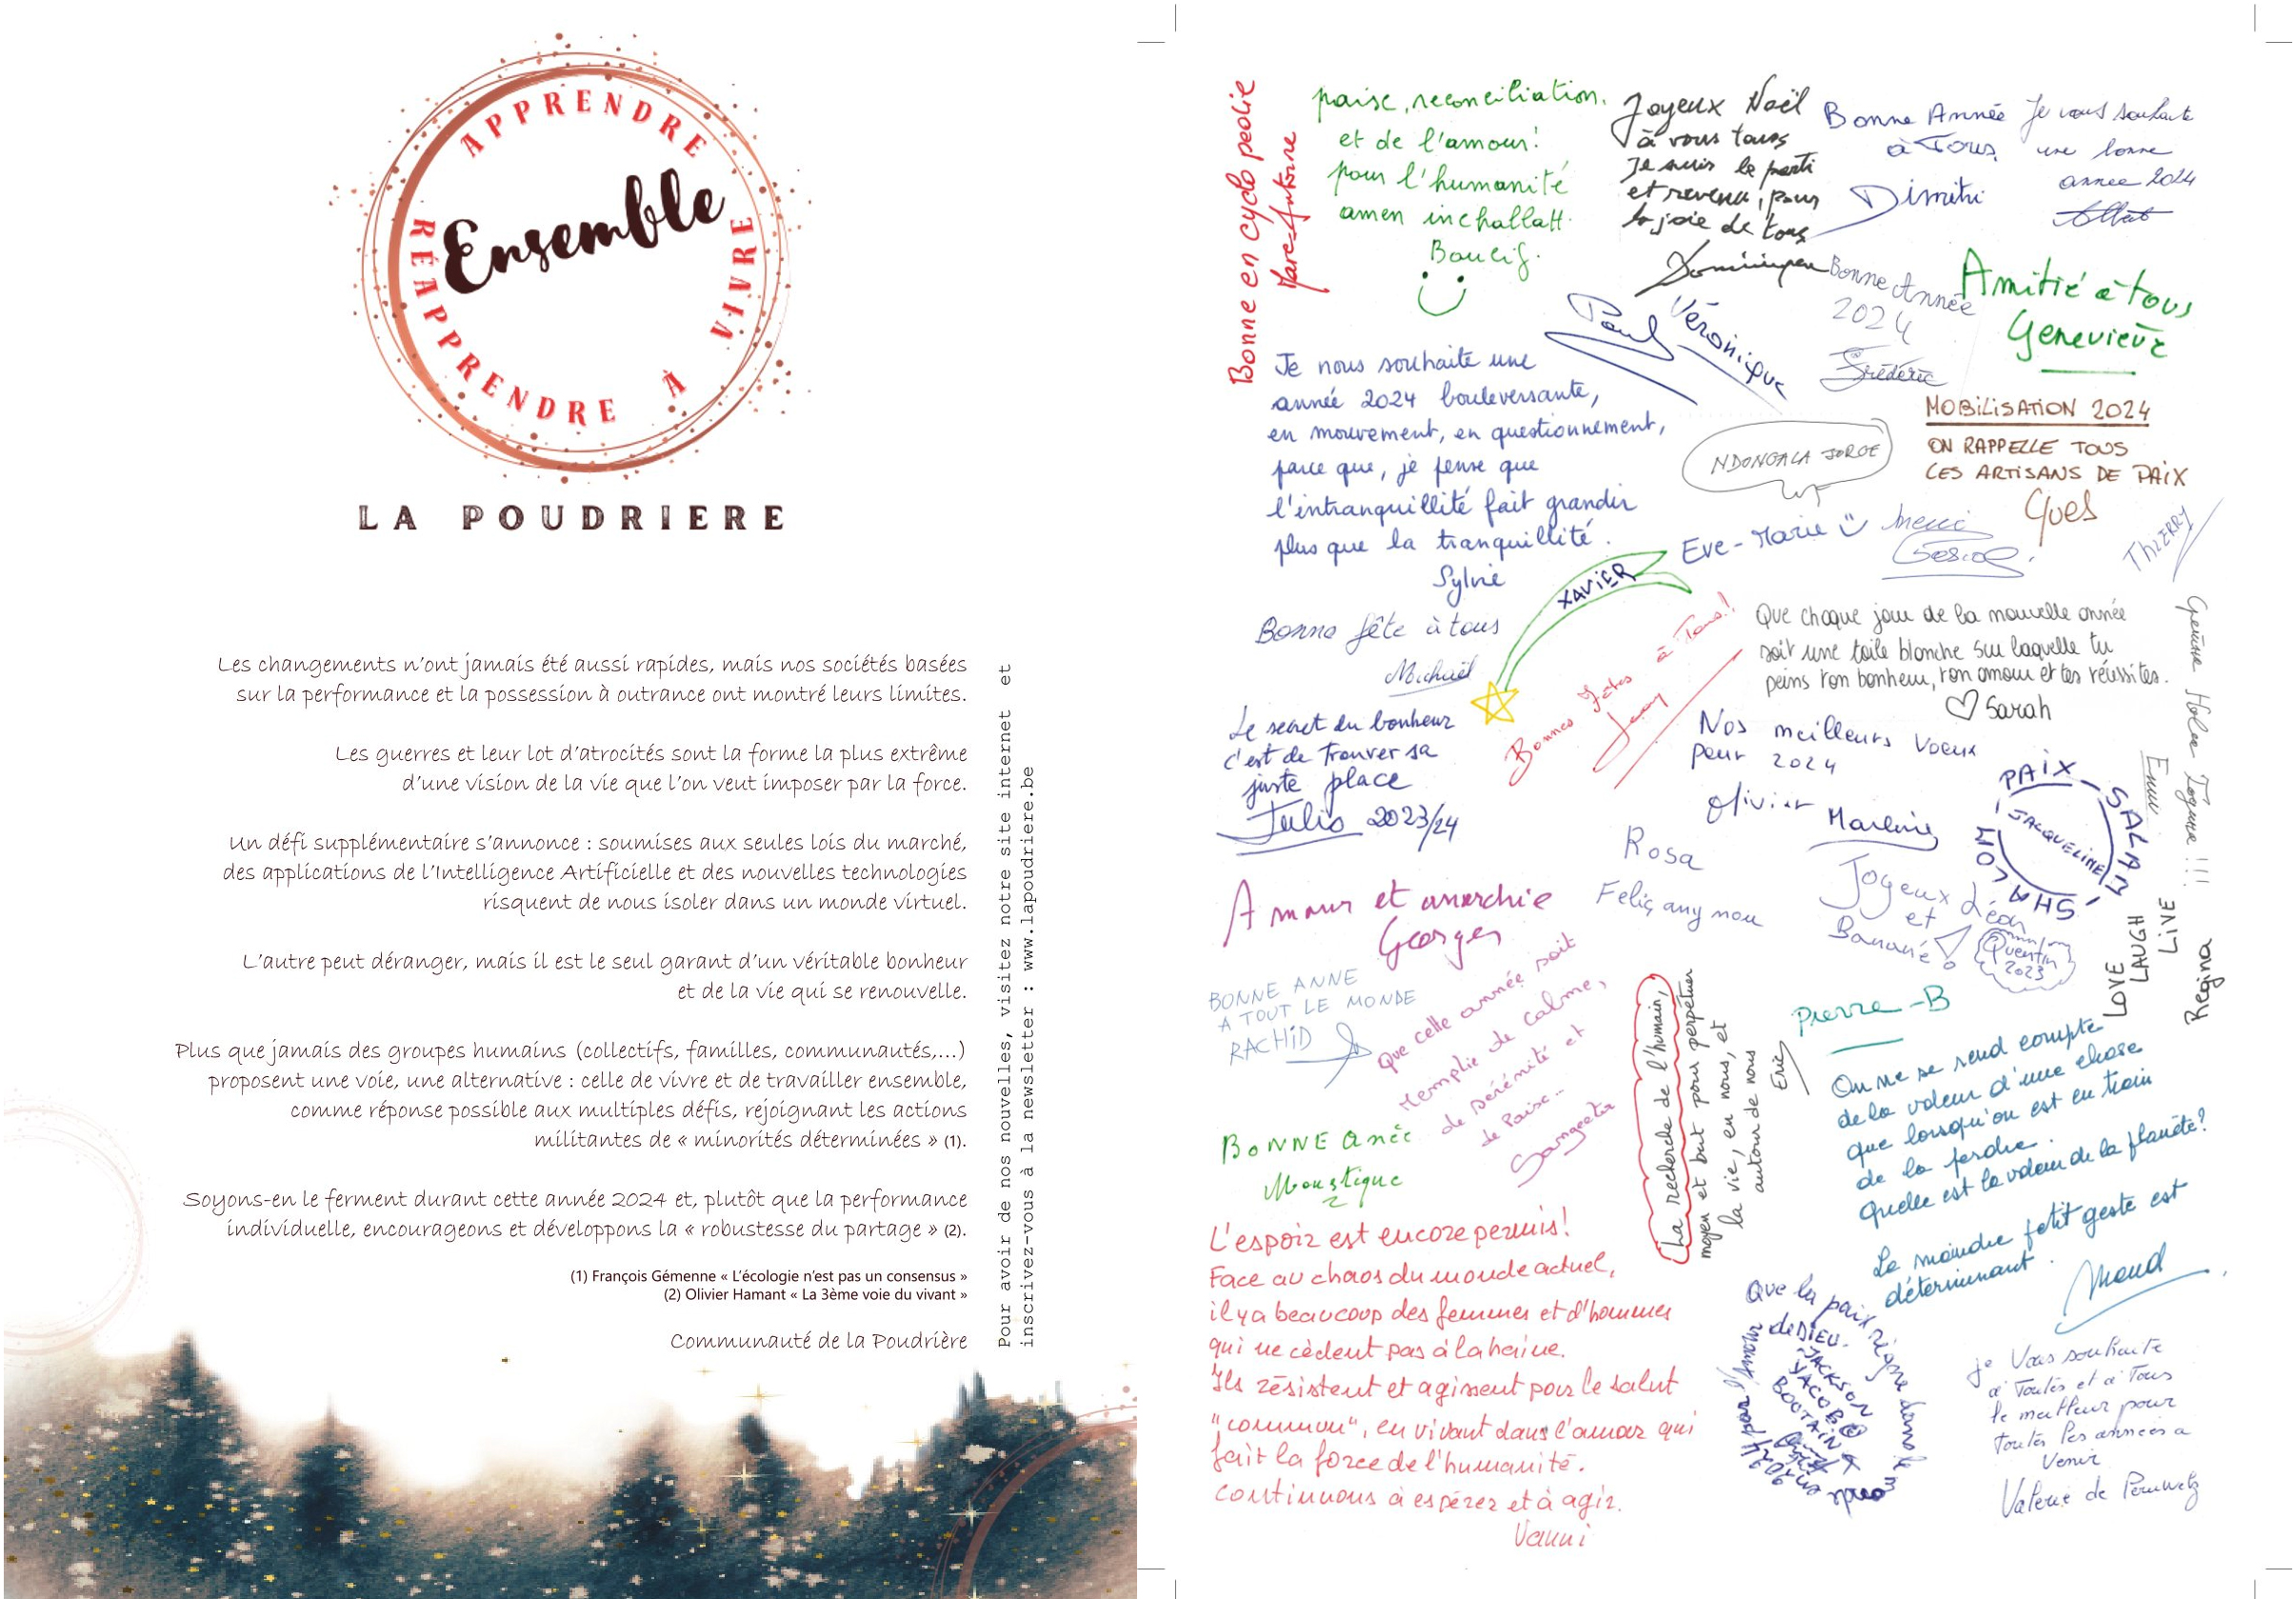 APPRENDRE
RÉAPPRENDRE À VIVRE
Ensemble
LA POUDRIERE
Les changements n'ont jamais été aussi rapides, mais nos sociétés basées
sur la performance et la possession à outrance ont montré leurs limites.
Les guerres et leur lot d'atrocités sont la forme la plus extrême
d'une vision de la vie que l'on veut imposer par la force.
Un défi supplémentaire s'annonce : soumises aux seules lois du marché,
des applications de l'Intelligence Artificielle et des nouvelles technologies
risquent de nous isoler dans un monde virtuel.
L'autre peut déranger, mais il est le seul garant d'un véritable bonheur
et de la vie qui se renouvelle.
Plus que jamais des groupes humains (collectifs, familles, communautés,...)
proposent une voie, une alternative : celle de vivre et de travailler ensemble,
comme réponse possible aux multiples défis, rejoignant les actions
militantes de « minorités déterminées » (1).
Soyons-en le ferment durant cette année 2024 et, plutôt que la performance
individuelle, encourageons et développons la « robustesse du partage » (2).
(1) François Gémenne « L'écologie n'est pas un consensus »
(2) Olivier Hamant « La 3ème voie du vivant »
Communauté de la Poudrière
Pour avoir de nos nouvelles, visitez notre site internet et
inscrivez-vous à la newsletter : www.lapoudriere.be
Bonne en cyclo peolie
Marc-Antoine
paix, reconciliation.
et de l'amour!
pour l'humanité
amen inchallatt.
Boulif.
Joyeux Noël
à vous tous
Je suis le parti
et revenu, pour
la joie de tous
Bonne Année
à Tous
Dimitri
Je vous souhaite
une bonne
annee 2024
Paul
Véronique
Bonne Année
2024
Fréderic
Amitié à tous
Geneviève
Je nous souhaite une
année 2024 bouleversante,
en mouvement, en questionnement,
parce que, je pense que
l'intranquillité fait grandir
plus que la tranquillité.
Sylvie
NDONGALA JORGE
MOBILISATION 2024
ON RAPPELLE TOUS
LES ARTISANS DE PAIX
Yves
Eve-Marie
merci
THIERRY
XAVIER
Bonne fête à tous
Michaël
Bonnes fêtes à Tous!
Que chaque jour de la nouvelle année
soit une toile blanche sur laquelle tu
peins ton bonheur, ton amour et tes réussites.
Sarah
Le secret du bonheur
c'est de trouver sa
juste place
Julio 2023/24
Nos meilleurs voeux
pour 2024
Olivier
PAIX
SALAM
SHALOM
JACQUELINE
Rosa
Feliç any nou
Joyeux Léon
et
Banané!
Quentin
2023
LOVE
LAUGH
LIVE
Regina
Amour et anarchie
Georges
BONNE ANNE
A TOUT LE MONDE
RACHID
Que cette année soit
remplie de calme,
de sérénité et
de Paix...
Sangeeta
La recherche de l'humain,
moyen et but pour perpétuer
la vie, en nous, et
autour de nous
Eric
Pierre-B
On ne se rend compte
de la valeur d'une chose
que lorsqu'on est en train
de la perdre.
Quelle est la valeur de la planète?
Le moindre petit geste est
déterminant.
Maud
BONNE Anéé
Moustique
L'espoir est encore permis!
Face au chaos du monde actuel,
il y a beaucoup des femmes et d'hommes
qui ne cèdent pas à la haine.
Ils résistent et agissent pour le salut
"commun", en vivant dans l'amour qui
fait la force de l'humanité.
continuons à espérer et à agir.
Vanni
Que la paix règne dans le monde
de DIEU.
JACKSON
YACOB
BOOTAIN
je Vous souhaite
à Toutes et à Tous
le meilleur pour
toutes les années a
Venir
Valérie de Peruwelz